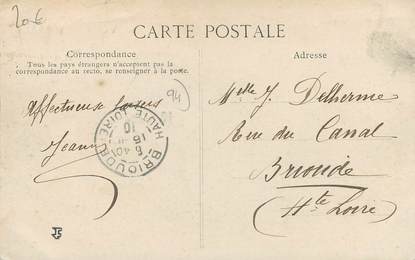 20€
CARTE POSTALE
Correspondance
Tous les pays étrangers n'acceptent pas la
correspondance au recto, se renseigner à la poste.
Adresse
94
Affectueux
Jeanne
BRIOUDE
HAUTE LOIRE
Melle J. Delherme
Rue du Canal
Brioude
(Hte Loire)